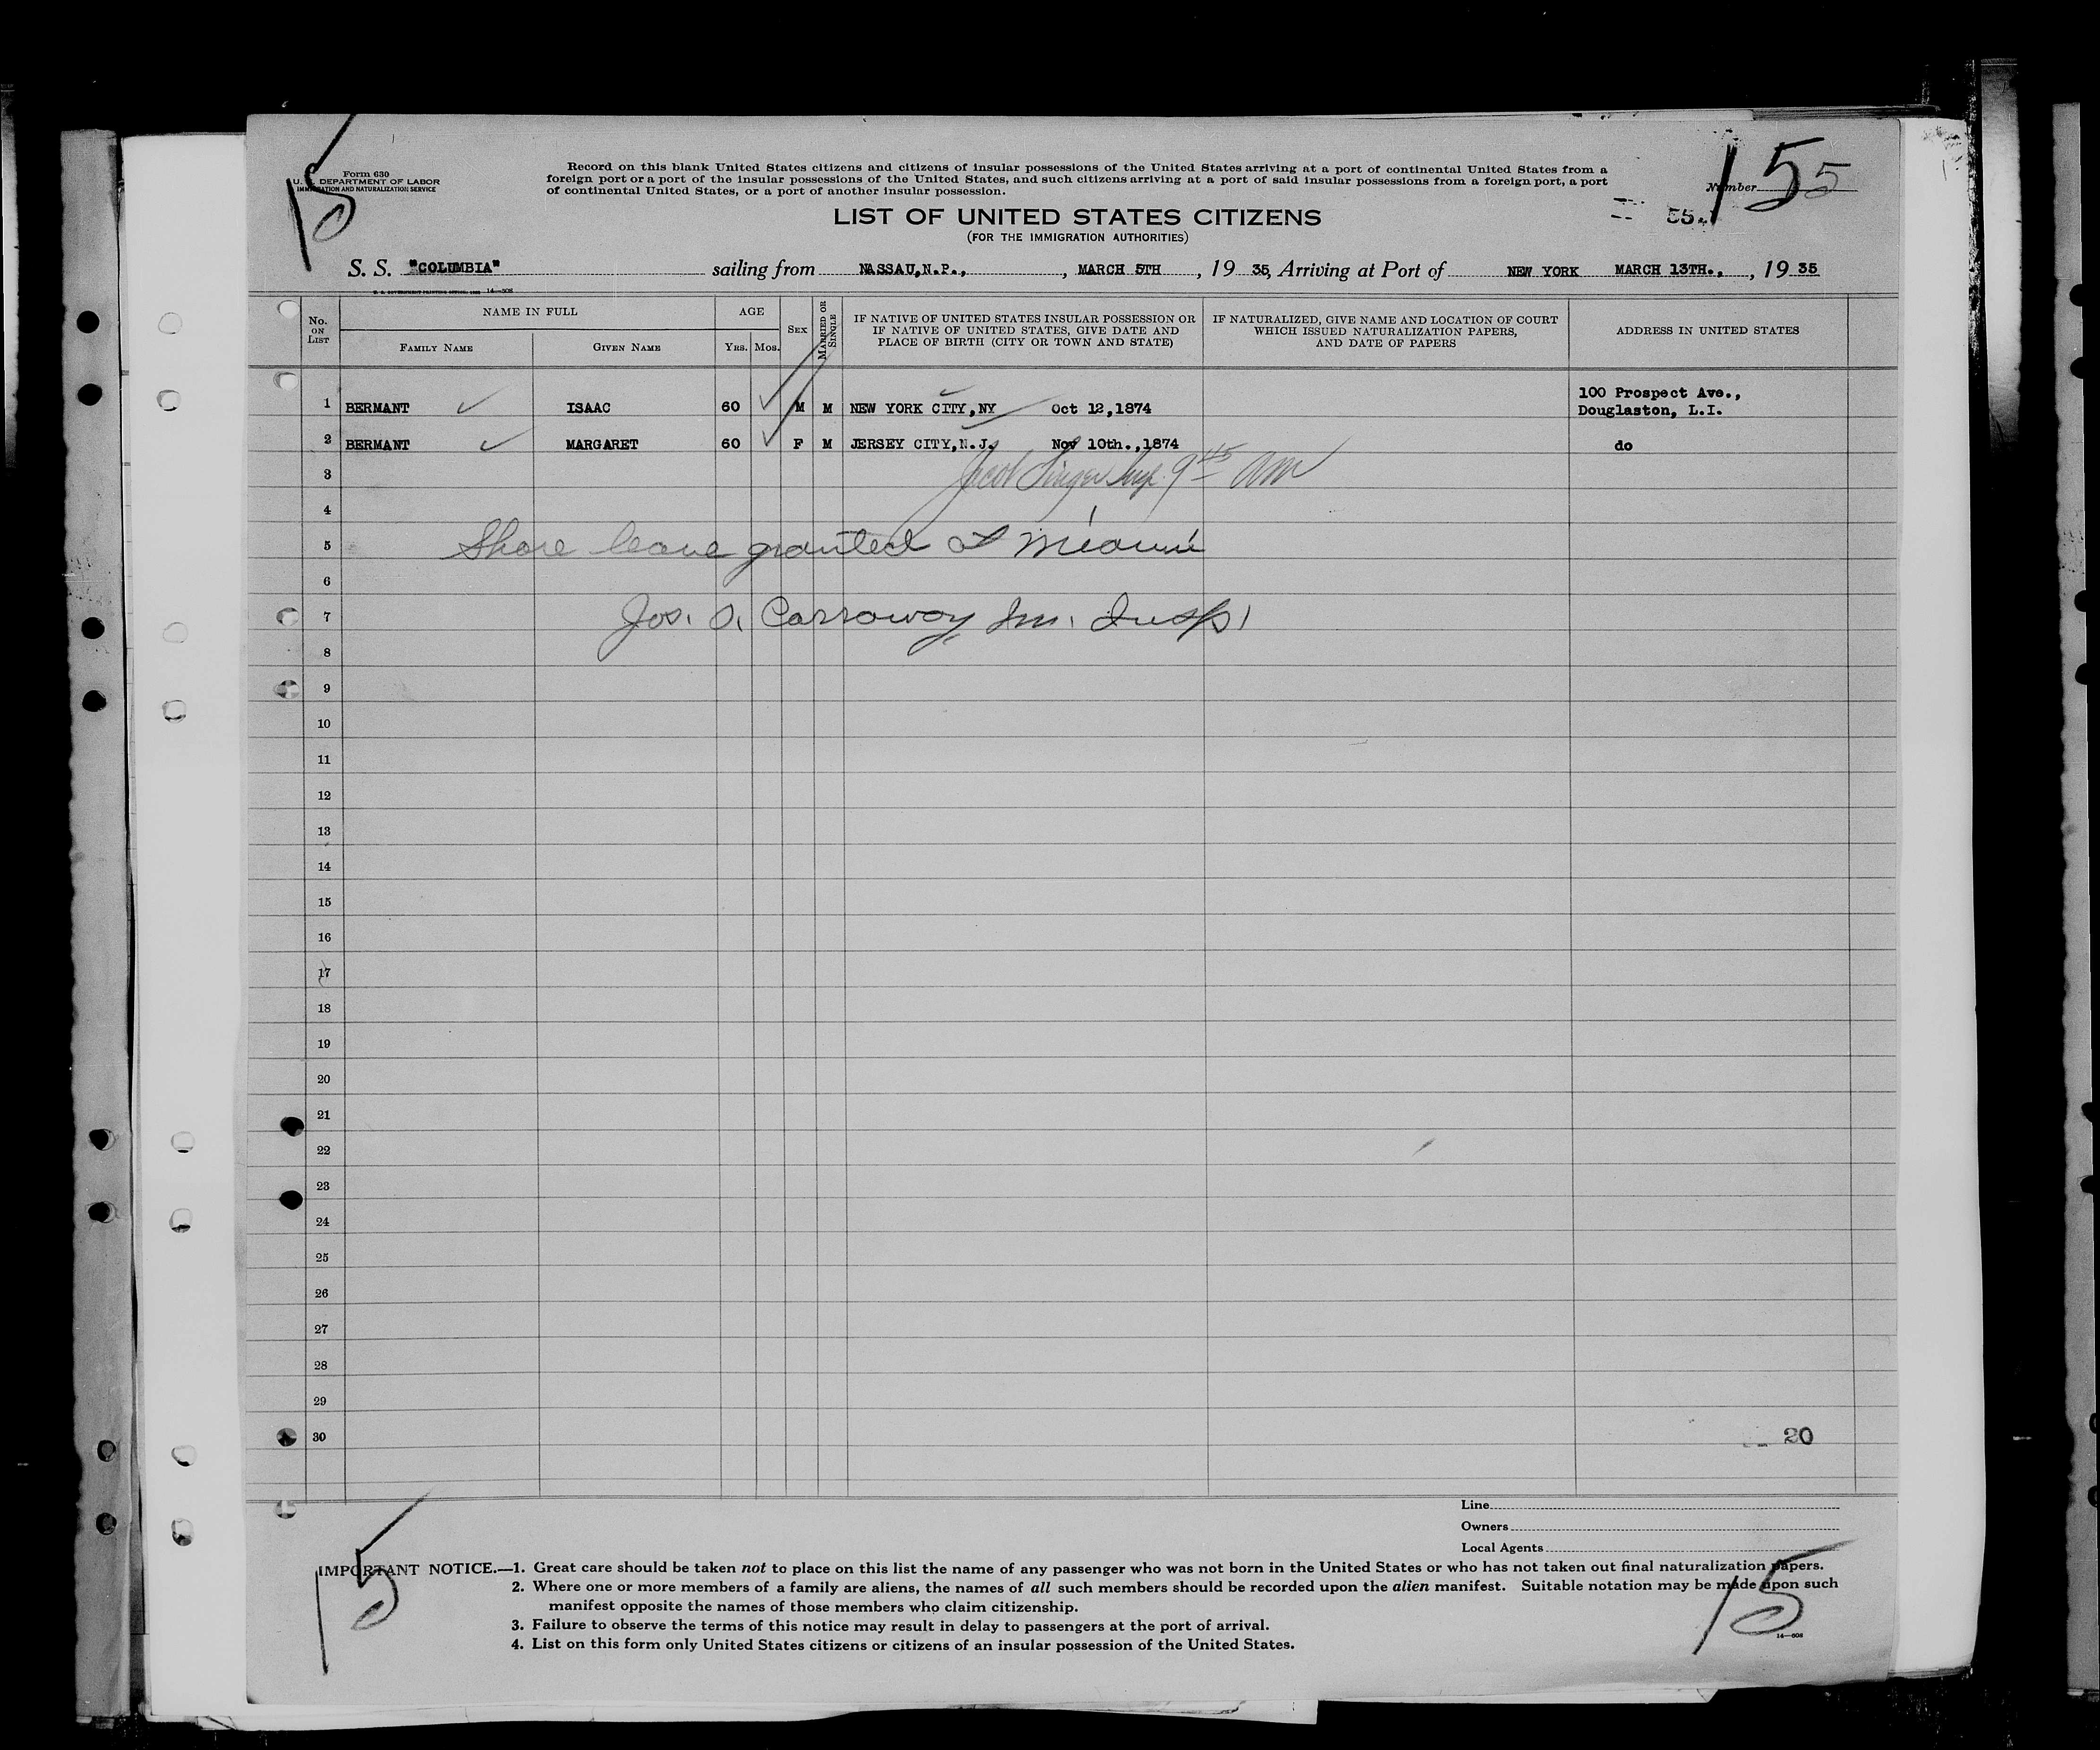 Form 630
U. S. DEPARTMENT OF LABOR
IMMIGRATION AND NATURALIZATION SERVICE
15
Record on this blank United States citizens and citizens of insular possessions of the United States arriving at a port of continental United States from a
foreign port or a port of the insular possessions of the United States, and such citizens arriving at a port of said insular possessions from a foreign port, a port
of continental United States, or a port of another insular possession.
Number 5
15
55
LIST OF UNITED STATES CITIZENS
(FOR THE IMMIGRATION AUTHORITIES)
S. S. "COLUMBIA" sailing from NASSAU,N.P., , MARCH 5TH , 19 35, Arriving at Port of NEW YORK MARCH 13TH., , 19 35
14—608
No. ON LIST
NAME IN FULL
FAMILY NAME GIVEN NAME
AGE
YRS. MOS.
SEX
MARRIED OR SINGLE
IF NATIVE OF UNITED STATES INSULAR POSSESSION OR
IF NATIVE OF UNITED STATES, GIVE DATE AND
PLACE OF BIRTH (CITY OR TOWN AND STATE)
IF NATURALIZED, GIVE NAME AND LOCATION OF COURT
WHICH ISSUED NATURALIZATION PAPERS,
AND DATE OF PAPERS
ADDRESS IN UNITED STATES
1 BERMANT ISAAC 60 M M NEW YORK CITY,NY Oct 12,1874 100 Prospect Ave.,
Douglaston, L.I.
2 BERMANT MARGARET 60 F M JERSEY CITY,N.J. Nov 10th.,1874 do
3 Jacob Singer Insp. 9 45 AM
4
5 Shore leave granted at Miami
6
7 Jos. O. Carraway Im. Insp.
8
9
10
11
12
13
14
15
16
17
18
19
20
21
22
23
24
25
26
27
28
29
30 20
Line
Owners
Local Agents
IMPORTANT NOTICE.—1. Great care should be taken not to place on this list the name of any passenger who was not born in the United States or who has not taken out final naturalization papers.
2. Where one or more members of a family are aliens, the names of all such members should be recorded upon the alien manifest. Suitable notation may be made upon such
manifest opposite the names of those members who claim citizenship.
3. Failure to observe the terms of this notice may result in delay to passengers at the port of arrival.
4. List on this form only United States citizens or citizens of an insular possession of the United States.
14—608
15
15